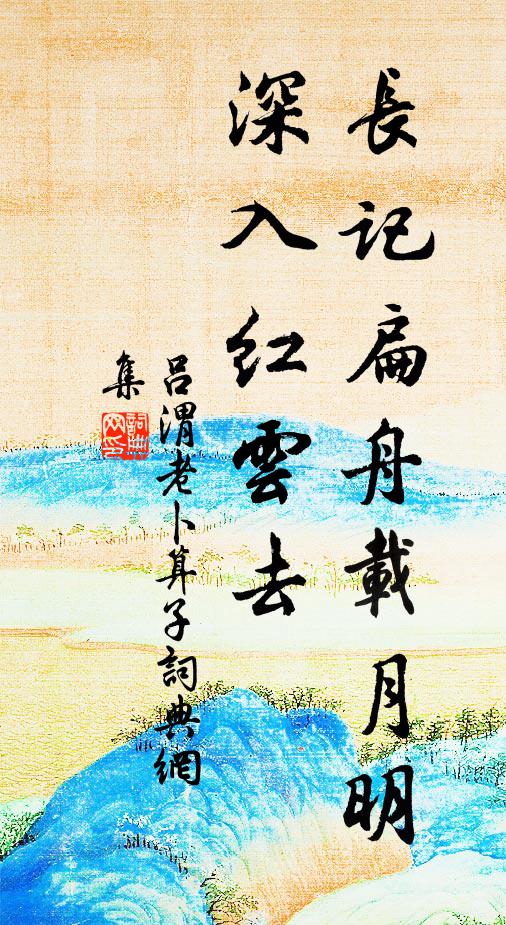 長記扁舟載月明
深入紅雲去
呂渭老卜算子詞典網
集
詞典網印